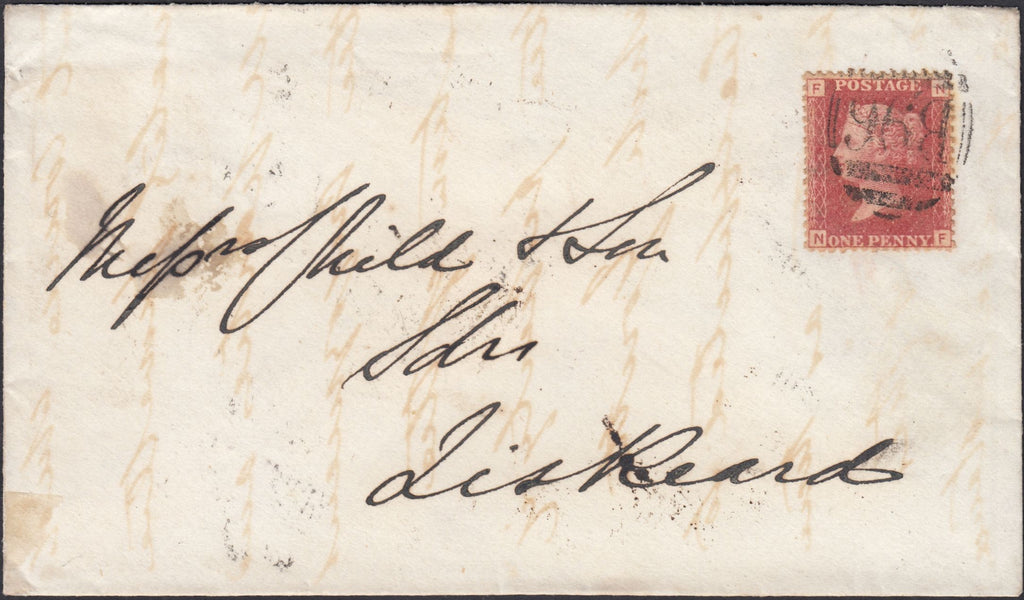 F POSTAGE N
N ONE PENNY F
Messrs Child & Son
Sdrs
Liskeard